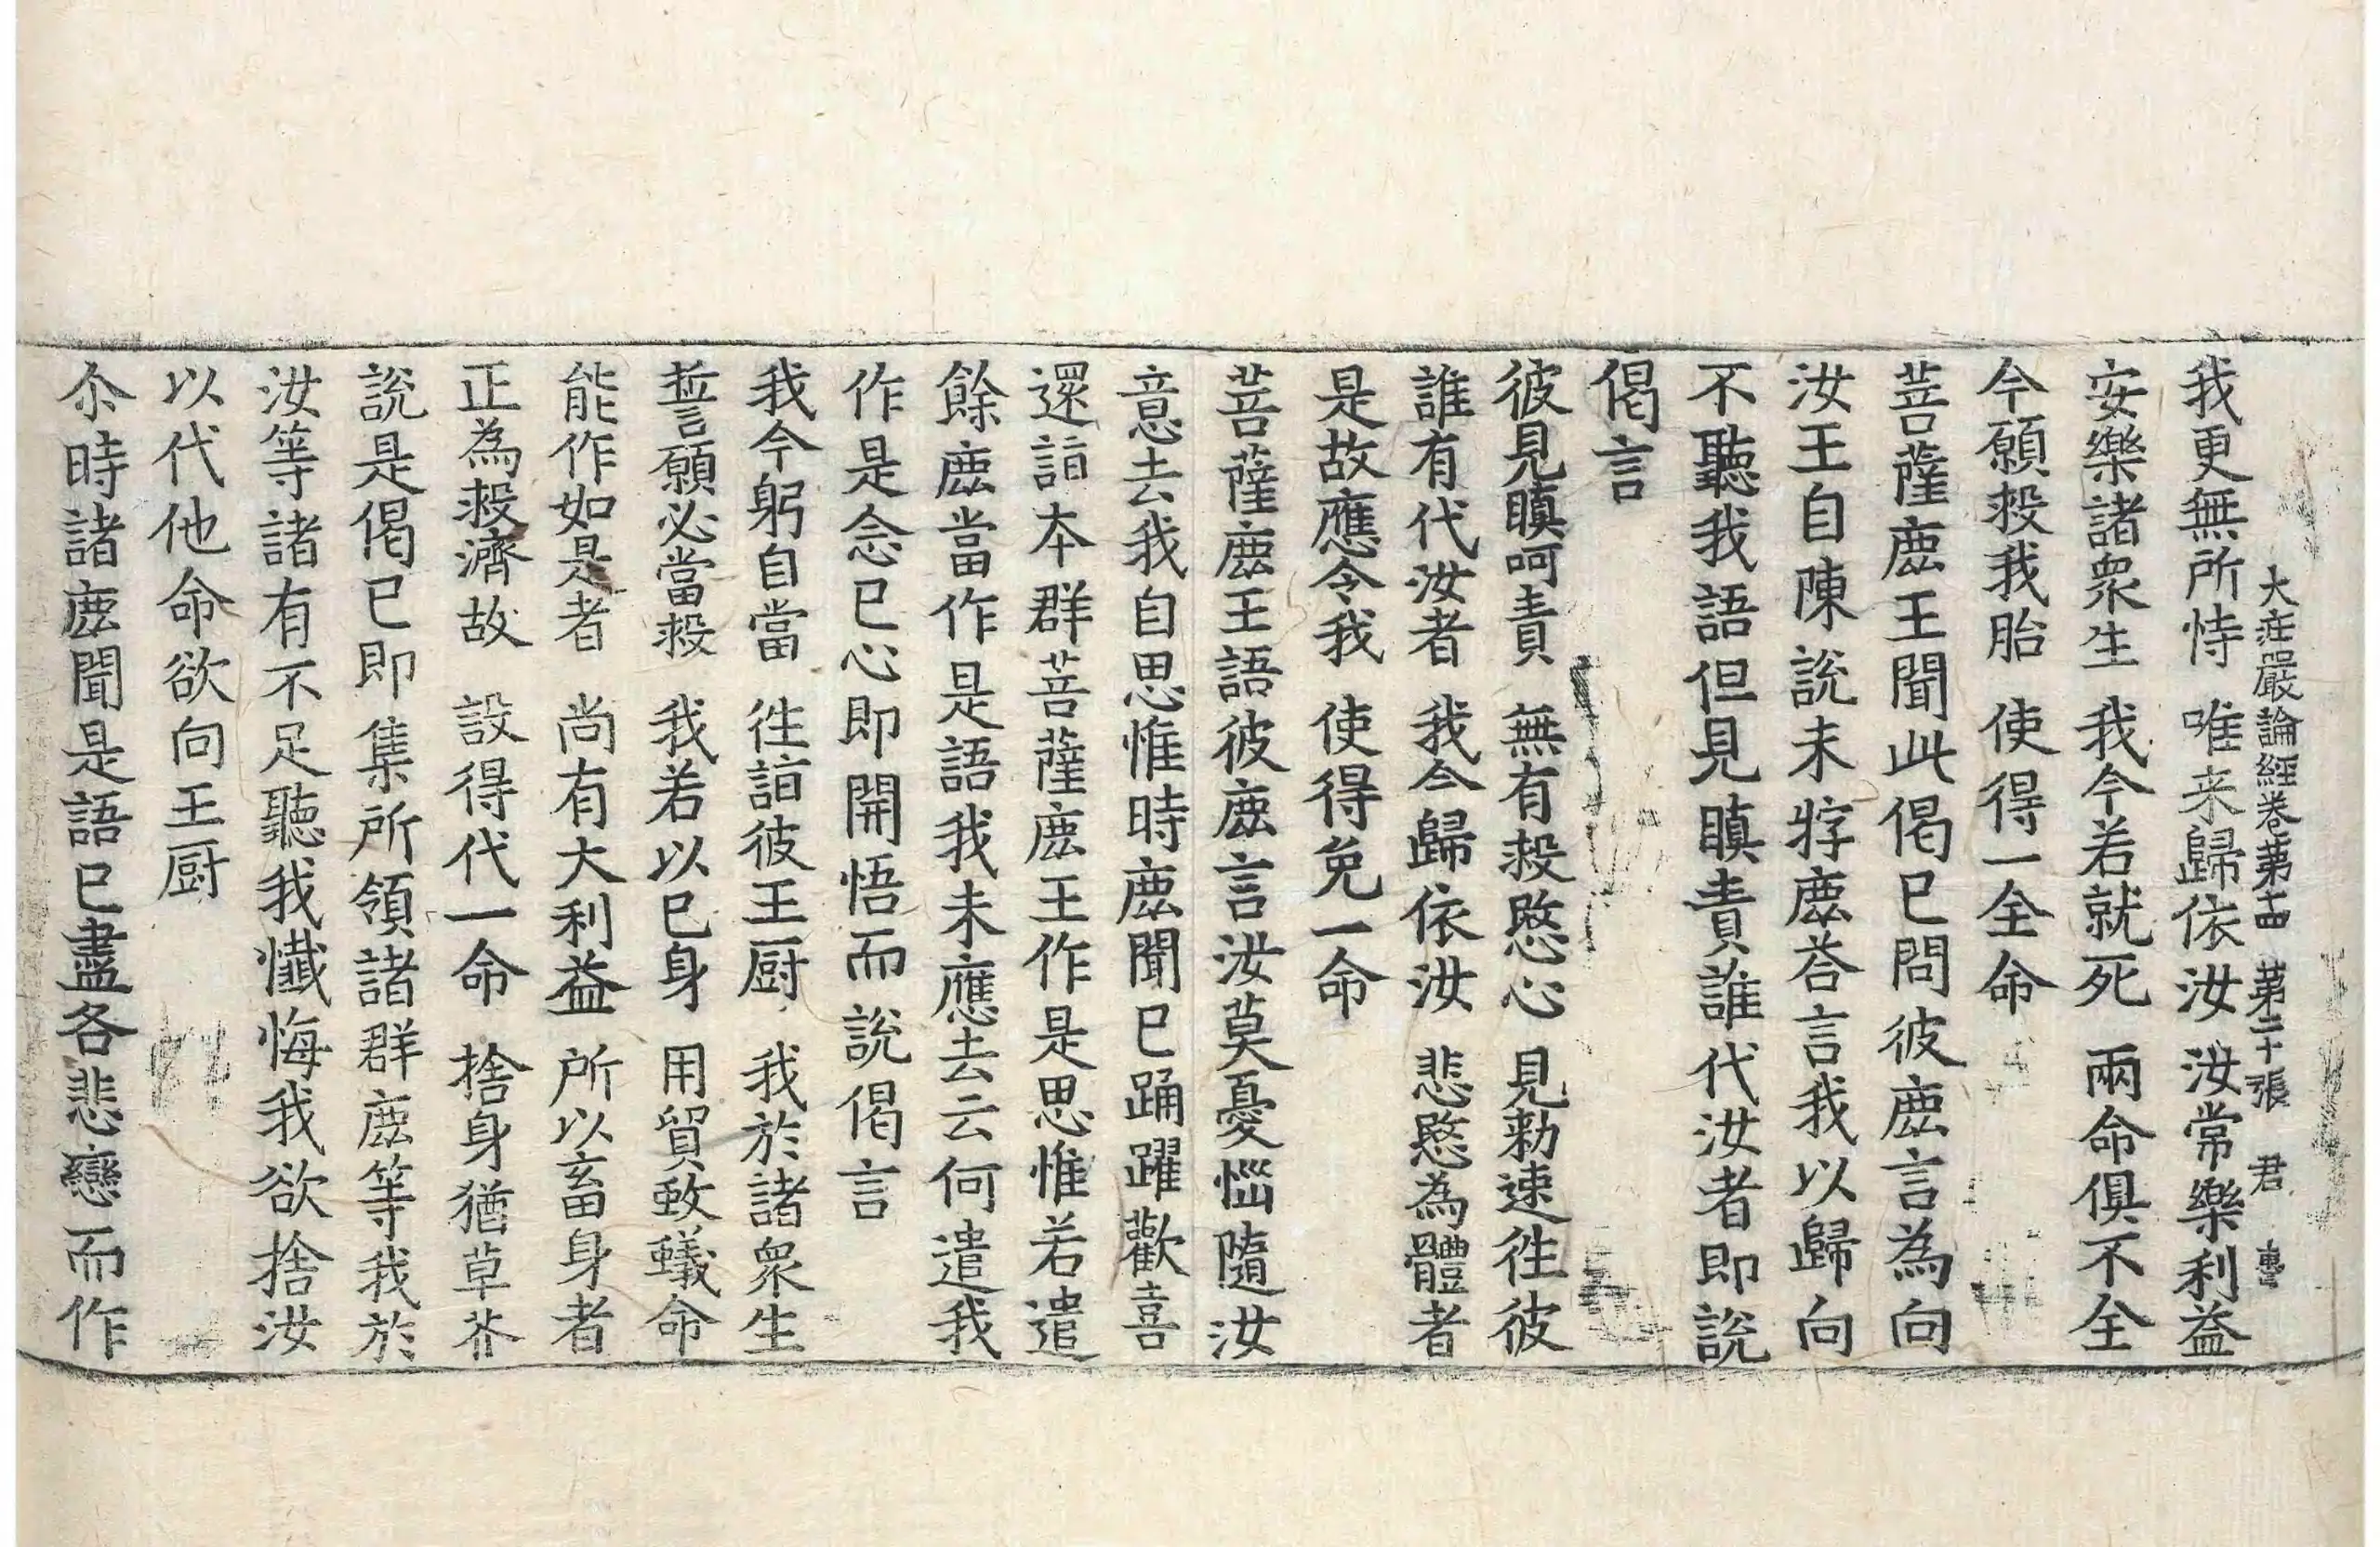 大莊嚴論經卷第十四　第二十張　君
我更無所恃　唯来歸依汝　汝常樂利益
安樂諸衆生　我今若就死　兩命俱不全
今願救我胎　使得一全命
菩薩鹿王聞此偈已問彼鹿言為向
汝王自陳說未牸鹿荅言我以歸向
不聽我語但見瞋責誰代汝者即說
偈言
彼見瞋呵責　無有救愍心　見勑速往彼
誰有代汝者　我今歸依汝　悲愍為體者
是故應令我　使得免一命
菩薩鹿王語彼鹿言汝莫憂惱隨汝
意去我自思惟時鹿聞已踊躍歡喜
還詣本群菩薩鹿王作是思惟若遣
餘鹿當作是語我未應去云何遣我
作是念已心即開悟而說偈言
我今躬自當　往詣彼王厨　我於諸衆生
誓願必當救　我若以已身　用貿蚊蟻命
能作如是者　尚有大利益　所以畜身者
正為救濟故　設得代一命　捨身猶草芥
說是偈已即集所領諸群鹿等我於
汝等諸有不足聽我懺悔我欲捨汝
以代他命欲向王厨
尒時諸鹿聞是語已盡各悲戀而作